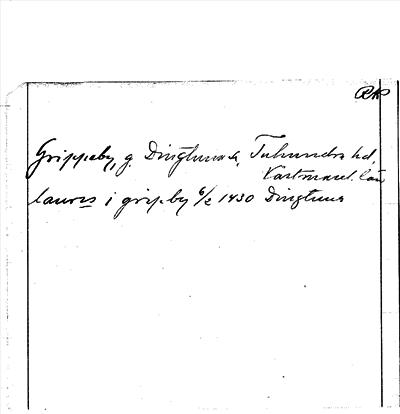 RAP
Grippeby, g. Dingtuna sn, Tuhundra hd,
Västmanl. län
laurens i gripby 6/2 1430 Dingtuna